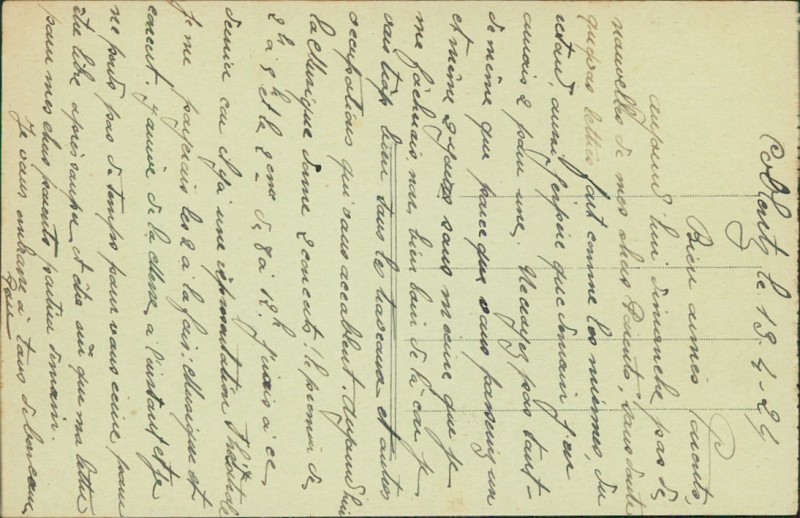 Coblentz le 13.4-24
Bien aimés Parents,
aujourd'hui dimanche pas de
nouvelles de mes chers Parents, sans doute
que vos lettres font comme les miennes, du
retard, aussi j'espère que demain j'en
aurais 2 pour une. N'ayez pas tant
de même que parce que vous
et même 2 jours sans moine que je
me fâcherais non, bien loin de là car je
sais trop bien tous les travaux et autres
occupations qui vous accablent. Aujourd'hui
la Musique donne 2 concerts: le premier de
2h à 5h et le 2ème de 8 à 12h. J'irais à ce
dernier car il y a une représentation Théâtrale
Je me payerais les 2 à la fois: Musique et
concert. J'arrive de la Messe à l'instant et je
ne perds pas de temps pour vous écrire pour
être libre après souper et être sûr que ma lettre
pour mes chers parents partira demain.
Je vous embrasse tous de bon cœur